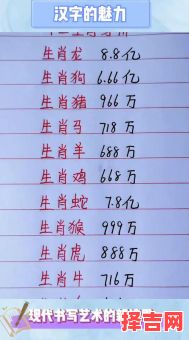 汉字的魅力
生肖龙 8.8亿
生肖狗 6.66亿
生肖猪 966万
生肖马 718万
生肖羊 688万
生肖鸡 668万
生肖蛇 7.8亿
生肖猴 999万
生肖虎 888万
生肖牛 716万
现代书写艺术的
择吉网